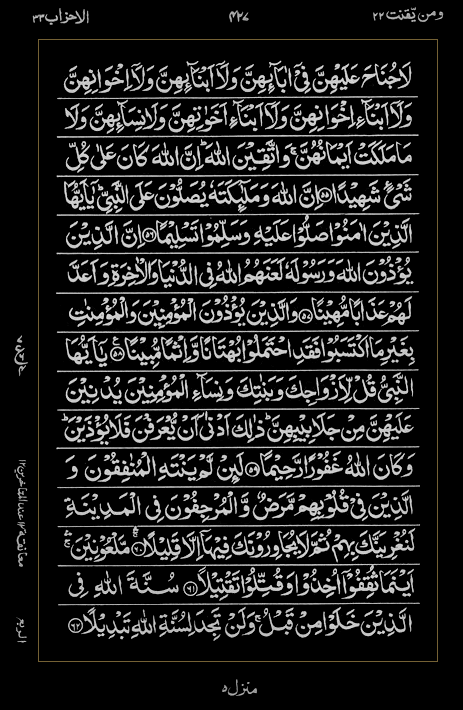 ومن یقنت ٢٢
٤٢٧
الاحزاب ٣٣
لَاجُنَاحَ عَلَيْهِنَّ فِيْٓ اٰبَآئِهِنَّ وَلَآ اَبْنَآئِهِنَّ وَلَآ اِخْوَانِهِنَّ
وَلَآ اَبْنَآءِ اِخْوَانِهِنَّ وَلَآ اَبْنَآءِ اَخَوٰتِهِنَّ وَلَا نِسَآئِهِنَّ وَلَا
مَا مَلَكَتْ اَيْمَانُهُنَّ ۚ وَاتَّقِيْنَ اللّٰهَ ؕ اِنَّ اللّٰهَ كَانَ عَلٰى كُلِّ
شَيْءٍ شَهِيْدًا ﴿٥٥﴾ اِنَّ اللّٰهَ وَمَلٰٓئِكَتَهٗ يُصَلُّوْنَ عَلَى النَّبِيِّ ؕ يٰٓاَيُّهَا
الَّذِيْنَ اٰمَنُوْا صَلُّوْا عَلَيْهِ وَسَلِّمُوْا تَسْلِيْمًا ﴿٥٦﴾ اِنَّ الَّذِيْنَ
يُؤْذُوْنَ اللّٰهَ وَرَسُوْلَهٗ لَعَنَهُمُ اللّٰهُ فِي الدُّنْيَا وَالْاٰخِرَةِ وَاَعَدَّ
لَهُمْ عَذَابًا مُّهِيْنًا ﴿٥٧﴾ وَالَّذِيْنَ يُؤْذُوْنَ الْمُؤْمِنِيْنَ وَالْمُؤْمِنٰتِ
بِغَيْرِ مَا اكْتَسَبُوْا فَقَدِ احْتَمَلُوْا بُهْتَانًا وَّاِثْمًا مُّبِيْنًا ﴿٥٨﴾ يٰٓاَيُّهَا
النَّبِيُّ قُلْ لِّاَزْوَاجِكَ وَبَنٰتِكَ وَنِسَآءِ الْمُؤْمِنِيْنَ يُدْنِيْنَ
عَلَيْهِنَّ مِنْ جَلَابِيْبِهِنَّ ؕ ذٰلِكَ اَدْنٰٓى اَنْ يُّعْرَفْنَ فَلَا يُؤْذَيْنَ ؕ
وَكَانَ اللّٰهُ غَفُوْرًا رَّحِيْمًا ﴿٥٩﴾ لَئِنْ لَّمْ يَنْتَهِ الْمُنٰفِقُوْنَ وَ
الَّذِيْنَ فِيْ قُلُوْبِهِمْ مَّرَضٌ وَّالْمُرْجِفُوْنَ فِي الْمَدِيْنَةِ
لَنُغْرِيَنَّكَ بِهِمْ ثُمَّ لَا يُجَاوِرُوْنَكَ فِيْهَآ اِلَّا قَلِيْلًا ﴿٦٠﴾ مَّلْعُوْنِيْنَ ۛ
اَيْنَمَا ثُقِفُوْٓا اُخِذُوْا وَقُتِّلُوْا تَقْتِيْلًا ﴿٦١﴾ سُنَّةَ اللّٰهِ فِي
الَّذِيْنَ خَلَوْا مِنْ قَبْلُ ۚ وَلَنْ تَجِدَ لِسُنَّةِ اللّٰهِ تَبْدِيْلًا ﴿٦٢﴾
الربع
منزل ٥